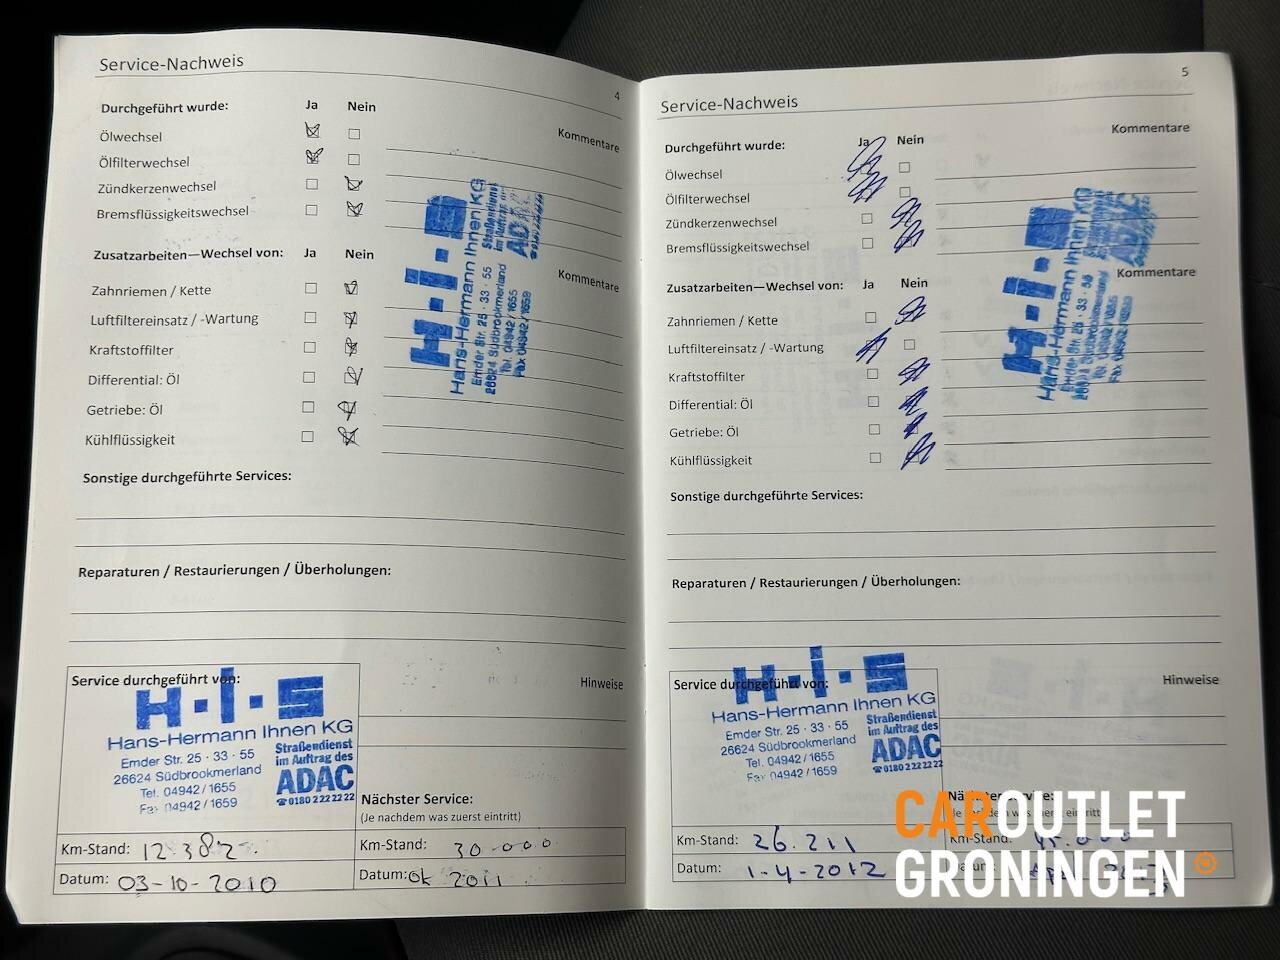 Service-Nachweis
4
Durchgeführt wurde: Ja Nein
Kommentare
Ölwechsel
Ölfilterwechsel
Zündkerzenwechsel
Bremsflüssigkeitswechsel
Zusatzarbeiten—Wechsel von: Ja Nein
Kommentare
Zahnriemen / Kette
Luftfiltereinsatz / -Wartung
Kraftstoffilter
Differential: Öl
Getriebe: Öl
Kühlflüssigkeit
H.I.S
Hans-Hermann Ihnen KG
Emder Str. 25 · 33 · 55
26624 Südbrookmerland
Tel. 04942/1655
Fax 04942/1659
Straßendienst
im Auftrag des
Sonstige durchgeführte Services:
Reparaturen / Restaurierungen / Überholungen:
Service durchgeführt von:
Hinweise
H.I.S
Hans-Hermann Ihnen KG
Emder Str. 25 · 33 · 55
26624 Südbrookmerland
Tel. 04942/1655
Fax 04942/1659
Straßendienst
im Auftrag des
ADAC
☎0180 2 22 22 22
Nächster Service:
(Je nachdem was zuerst eintritt)
Km-Stand: 12.382.
Km-Stand: 30.000
Datum: 03-10-2010
Datum: ok 2011
Service-Nachweis
5
Durchgeführt wurde: Ja Nein
Kommentare
Ölwechsel
Ölfilterwechsel
Zündkerzenwechsel
Bremsflüssigkeitswechsel
Zusatzarbeiten—Wechsel von: Ja Nein
Kommentare
Zahnriemen / Kette
Luftfiltereinsatz / -Wartung
Kraftstoffilter
Differential: Öl
Getriebe: Öl
Kühlflüssigkeit
H.I.S
Hans-Hermann Ihnen KG
Emder Str. 25 · 33 · 55
26624 Südbrookmerland
Tel. 04942/1655
Fax 04942/1659
Sonstige durchgeführte Services:
Reparaturen / Restaurierungen / Überholungen:
Service durchgeführt von:
Hinweise
H.I.S
Hans-Hermann Ihnen KG
Emder Str. 25 · 33 · 55
26624 Südbrookmerland
Tel. 04942/1655
Fax 04942/1659
Straßendienst
im Auftrag des
ADAC
☎0180 2 22 22 22
Nächster Service:
Km-Stand: 26.211
Km-Stand: 45.000
Datum: 1-4-2012
CAROUTLET
GRONINGEN